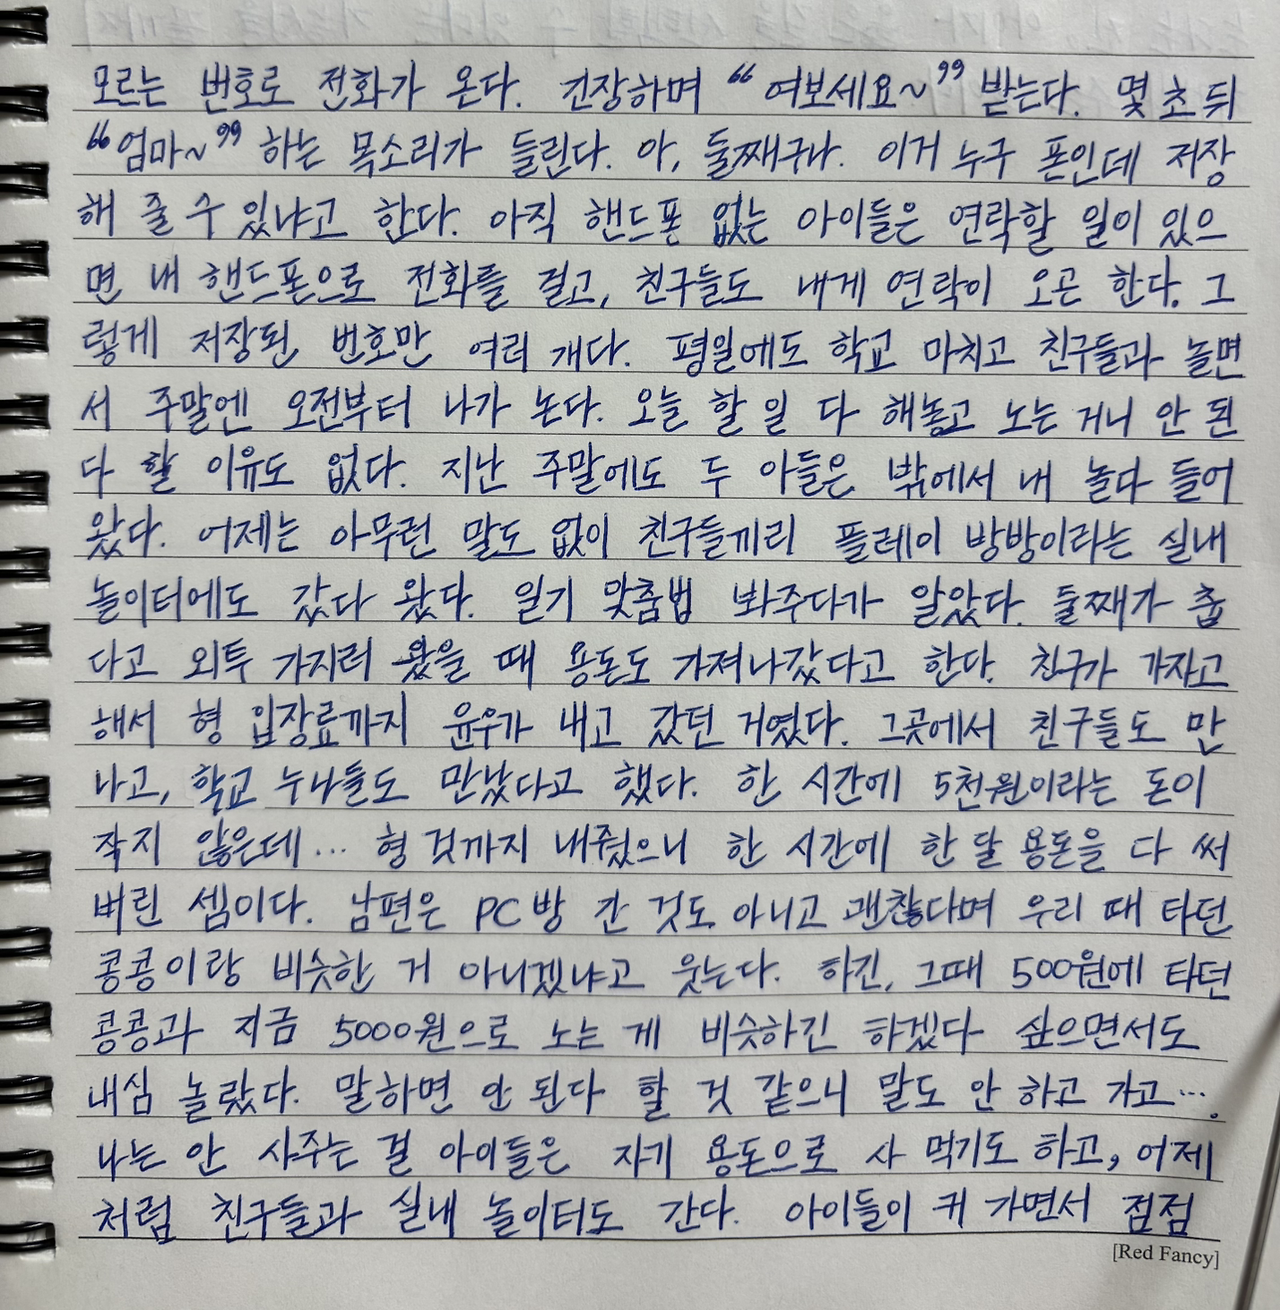 모르는 번호로 전화가 온다. 긴장하며 “여보세요~” 받는다. 몇 초 뒤
“엄마~” 하는 목소리가 들린다. 아, 둘째구나. 이거 누구 폰인데 저장
해 줄 수 있냐고 한다. 아직 핸드폰 없는 아이들은 연락할 일이 있으
면 내 핸드폰으로 전화를 걸고, 친구들도 내게 연락이 오곤 한다. 그
렇게 저장된 번호만 여러 개다. 평일에도 학교 마치고 친구들과 놀면
서 주말엔 오전부터 나가 논다. 오늘 할 일 다 해놓고 노는 거니 안 된
다 할 이유도 없다. 지난 주말에도 두 아들은 밖에서 내 놀다 들어
왔다. 어제는 아무런 말도 없이 친구들끼리 플레이 방방이라는 실내
놀이터에도 갔다 왔다. 일기 맞춤법 봐주다가 알았다. 둘째가 춥
다고 외투 가지러 왔을 때 용돈도 가져나갔다고 한다. 친구가 가자고
해서 형 입장료까지 윤우가 내고 갔던 거였다. 그곳에서 친구들도 만
나고, 학교 누나들도 만났다고 했다. 한 시간에 5천원이라는 돈이
작지 않은데... 형 것까지 내줬으니 한 시간에 한 달 용돈을 다 써
버린 셈이다. 남편은 PC방 간 것도 아니고 괜찮다며 우리 때 타던
콩콩이랑 비슷한 거 아니겠냐고 웃는다. 하긴, 그때 500원에 타던
콩콩과 지금 5000원으로 노는 게 비슷하긴 하겠다 싶으면서도
내심 놀랐다. 말하면 안 된다 할 것 같으니 말도 안 하고 가고....
나는 안 사주는 걸 아이들은 자기 용돈으로 사 먹기도 하고, 어제
처럼 친구들과 실내 놀이터도 간다. 아이들이 커 가면서 점점
[Red Fancy]